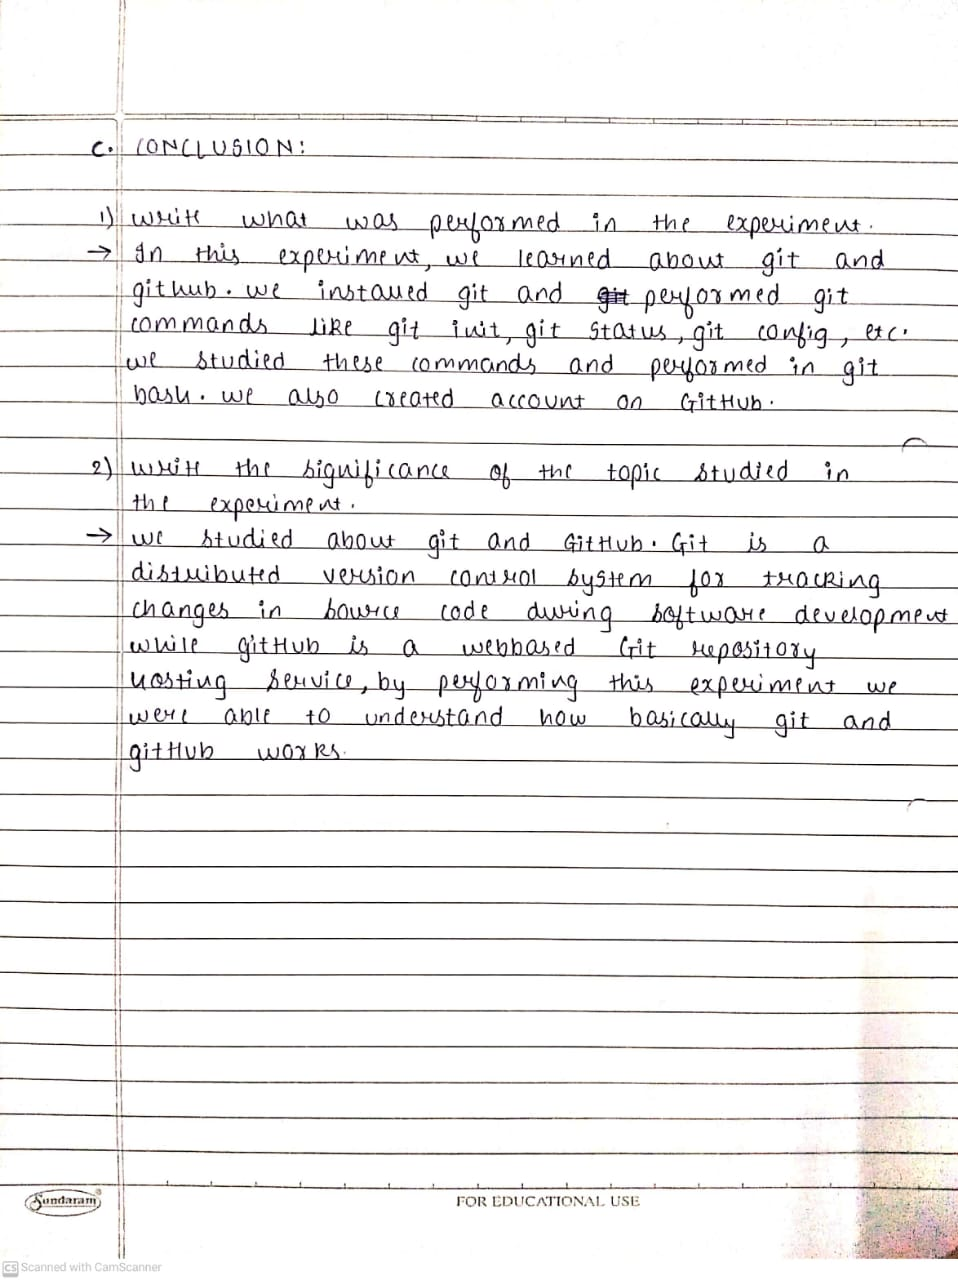 C. CONCLUSION:
1) write what was performed in the experiment.
→ In this experiment, we learned about git and
github. we installed git and git performed git
commands like git init, git status, git config, etc.
we studied these commands and performed in git
bash. we also created account on GitHub.
2) write the significance of the topic studied in
the experiment.
→ we studied about git and GitHub. Git is a
distributed version control system for tracking
changes in source code during software development
while gitHub is a webbased Git repository
hosting service, by performing this experiment we
were able to understand how basically git and
gitHub works.
Sundaram
FOR EDUCATIONAL USE
CS Scanned with CamScanner